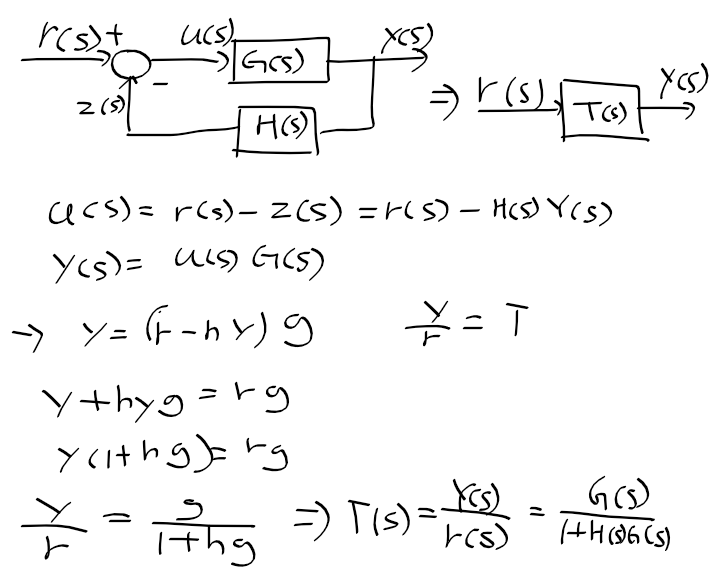 r(s) + u(s) G(s) Y(s)
- z(s) H(s)
⇒ r(s) T(s) Y(s)
u(s) = r(s) - z(s) = r(s) - H(s) Y(s)
Y(s) = u(s) G(s)
→ y = (r - h y) g y/r = T
y + hyg = rg
y(1+hg) = rg
y/r = g/(1+hg) ⇒ T(s) = Y(s)/r(s) = G(s)/(1+H(s)G(s))